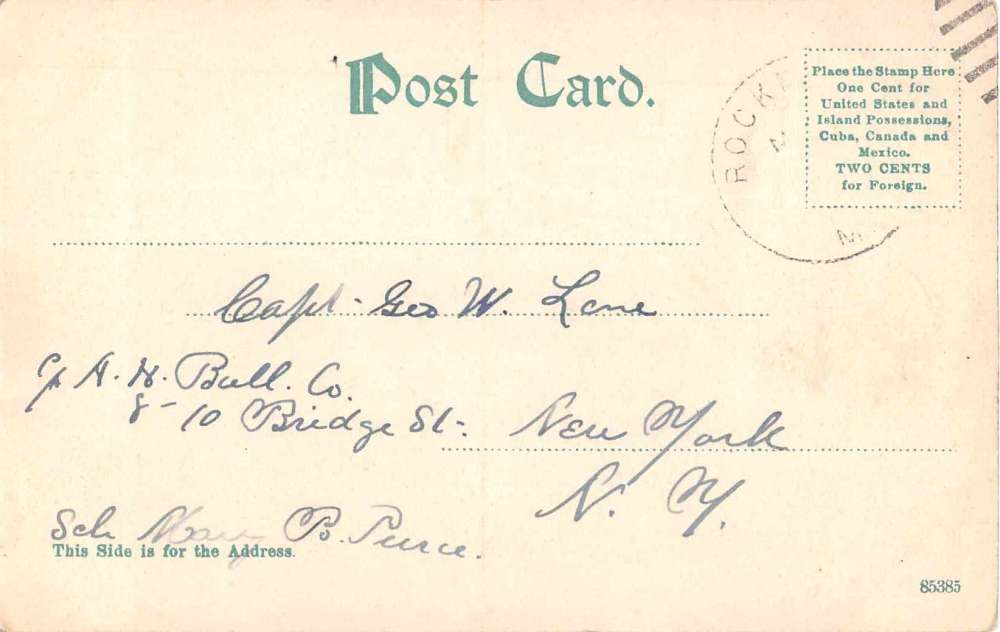 Post Card.
ROCK
Place the Stamp Here
One Cent for
United States and
Island Possessions,
Cuba, Canada and
Mexico.
TWO CENTS
for Foreign.
Capt. Geo W. Lane
c/o A. H. Bull. Co.
8-10 Bridge St.
New York
N. Y.
Sch Mary B. Pierce.
This Side is for the Address.
85385